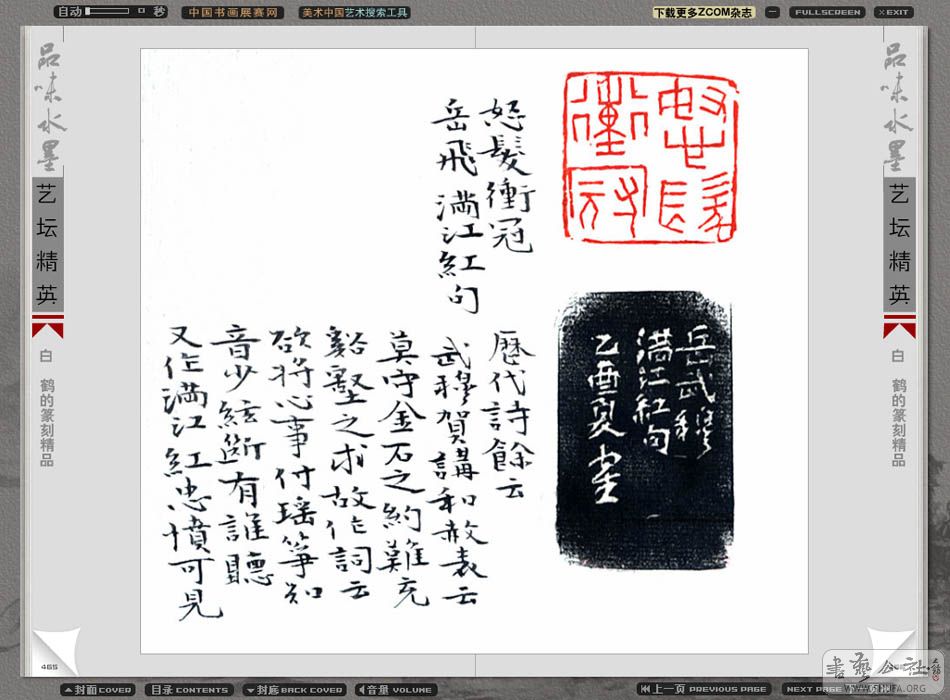 自动
秒
中国书画展赛网
美术中国艺术搜索工具
下载更多ZCOM杂志
FULLSCREEN
× EXIT
品味水墨
艺坛精英
白 鹤的篆刻精品
怒髮衝冠
怒髮衝冠
岳飛 满江紅句
歷代詩餘云
武穆賀講和赦表云
莫守金石之約難充
谿壑之求故作詞云
欲将心事付瑶筝知
音少絃断有誰聽
又作满江紅忠憤可見
岳武穆
满江紅句
乙酉夏
品味水墨
艺坛精英
白 鹤的篆刻精品
465
封面 COVER
目录 CONTENTS
封底 BACK COVER
音量 VOLUME
上一页 PREVIOUS PAGE
NEXT PAGE
書藝公社
WWW.SHUFA.ORG